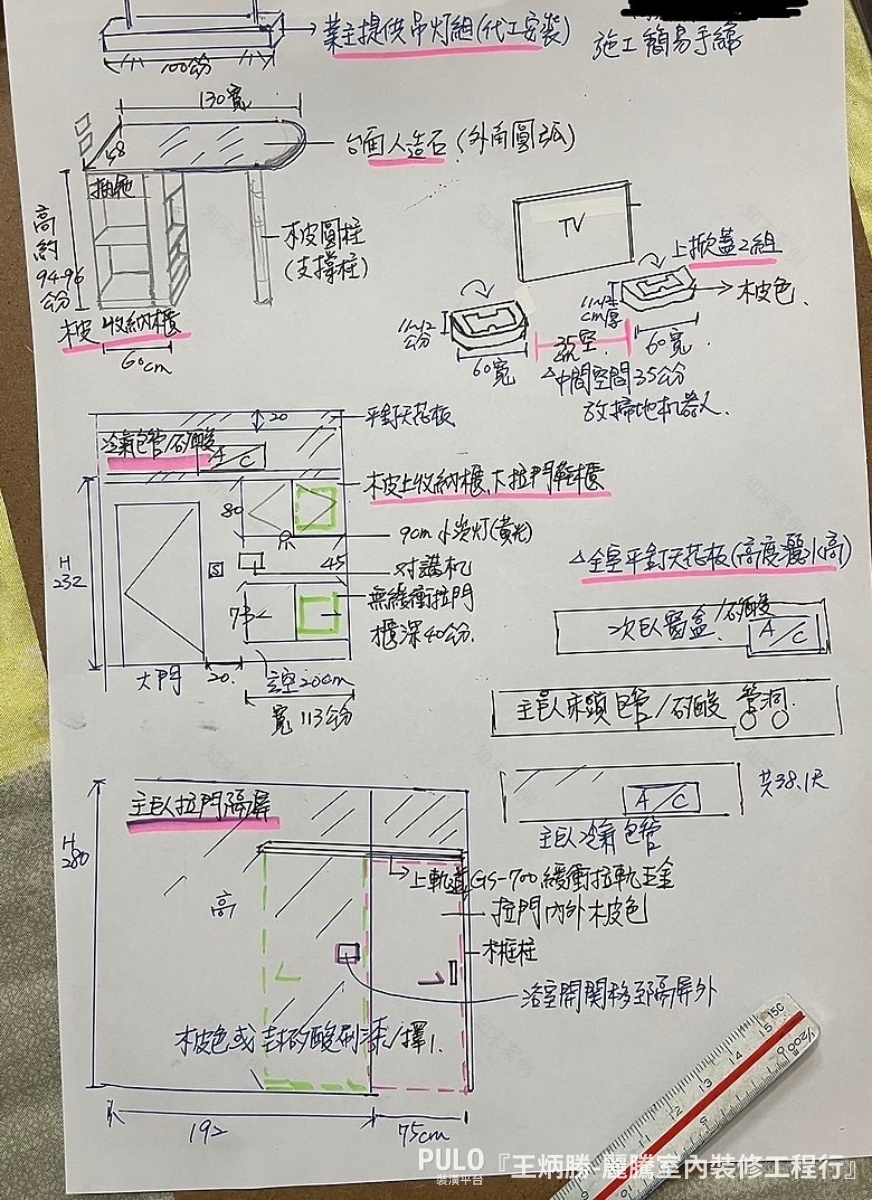 業主提供吊灯組(代工安裝)
施工簡易手繪
100公分
130寬
48
台面人造石(外角圓弧)
抽屜
高約94-96公分
木皮圓柱
(支撐柱)
木皮收納櫃
60cm
TV
上掀蓋2組
木皮色
11-12公分
60寬
35空
11-12cm厚
60寬
△中間空間35公分
放掃地机器人.
20
平釘天花板
冷氣包管/矽酸
A/C
木皮上收納櫃、大拉門鞋櫃
80
9cm小崁灯(黃光)
H232
S
对講机
45
無緩衝拉門
櫃深40公分.
73
大門
20.
空20cm
寬113公分
△全室平釘天花板(高度灑水高)
次臥窗盒/矽酸
A/C
主臥床頭包管/矽酸 管洞
共38.1尺
A/C
主臥冷氣包管
主臥拉門隔屏
H280
上軌道GS-700緩衝拉軌五金
高
拉門內外木皮色
木框柱
浴室開關移至隔屏外
木皮色或封矽酸刷漆/擇1.
192
75cm
15
14
13
12
11
10
9
PULO
裝潢平台
『王炳勝-麗騰室內裝修工程行』